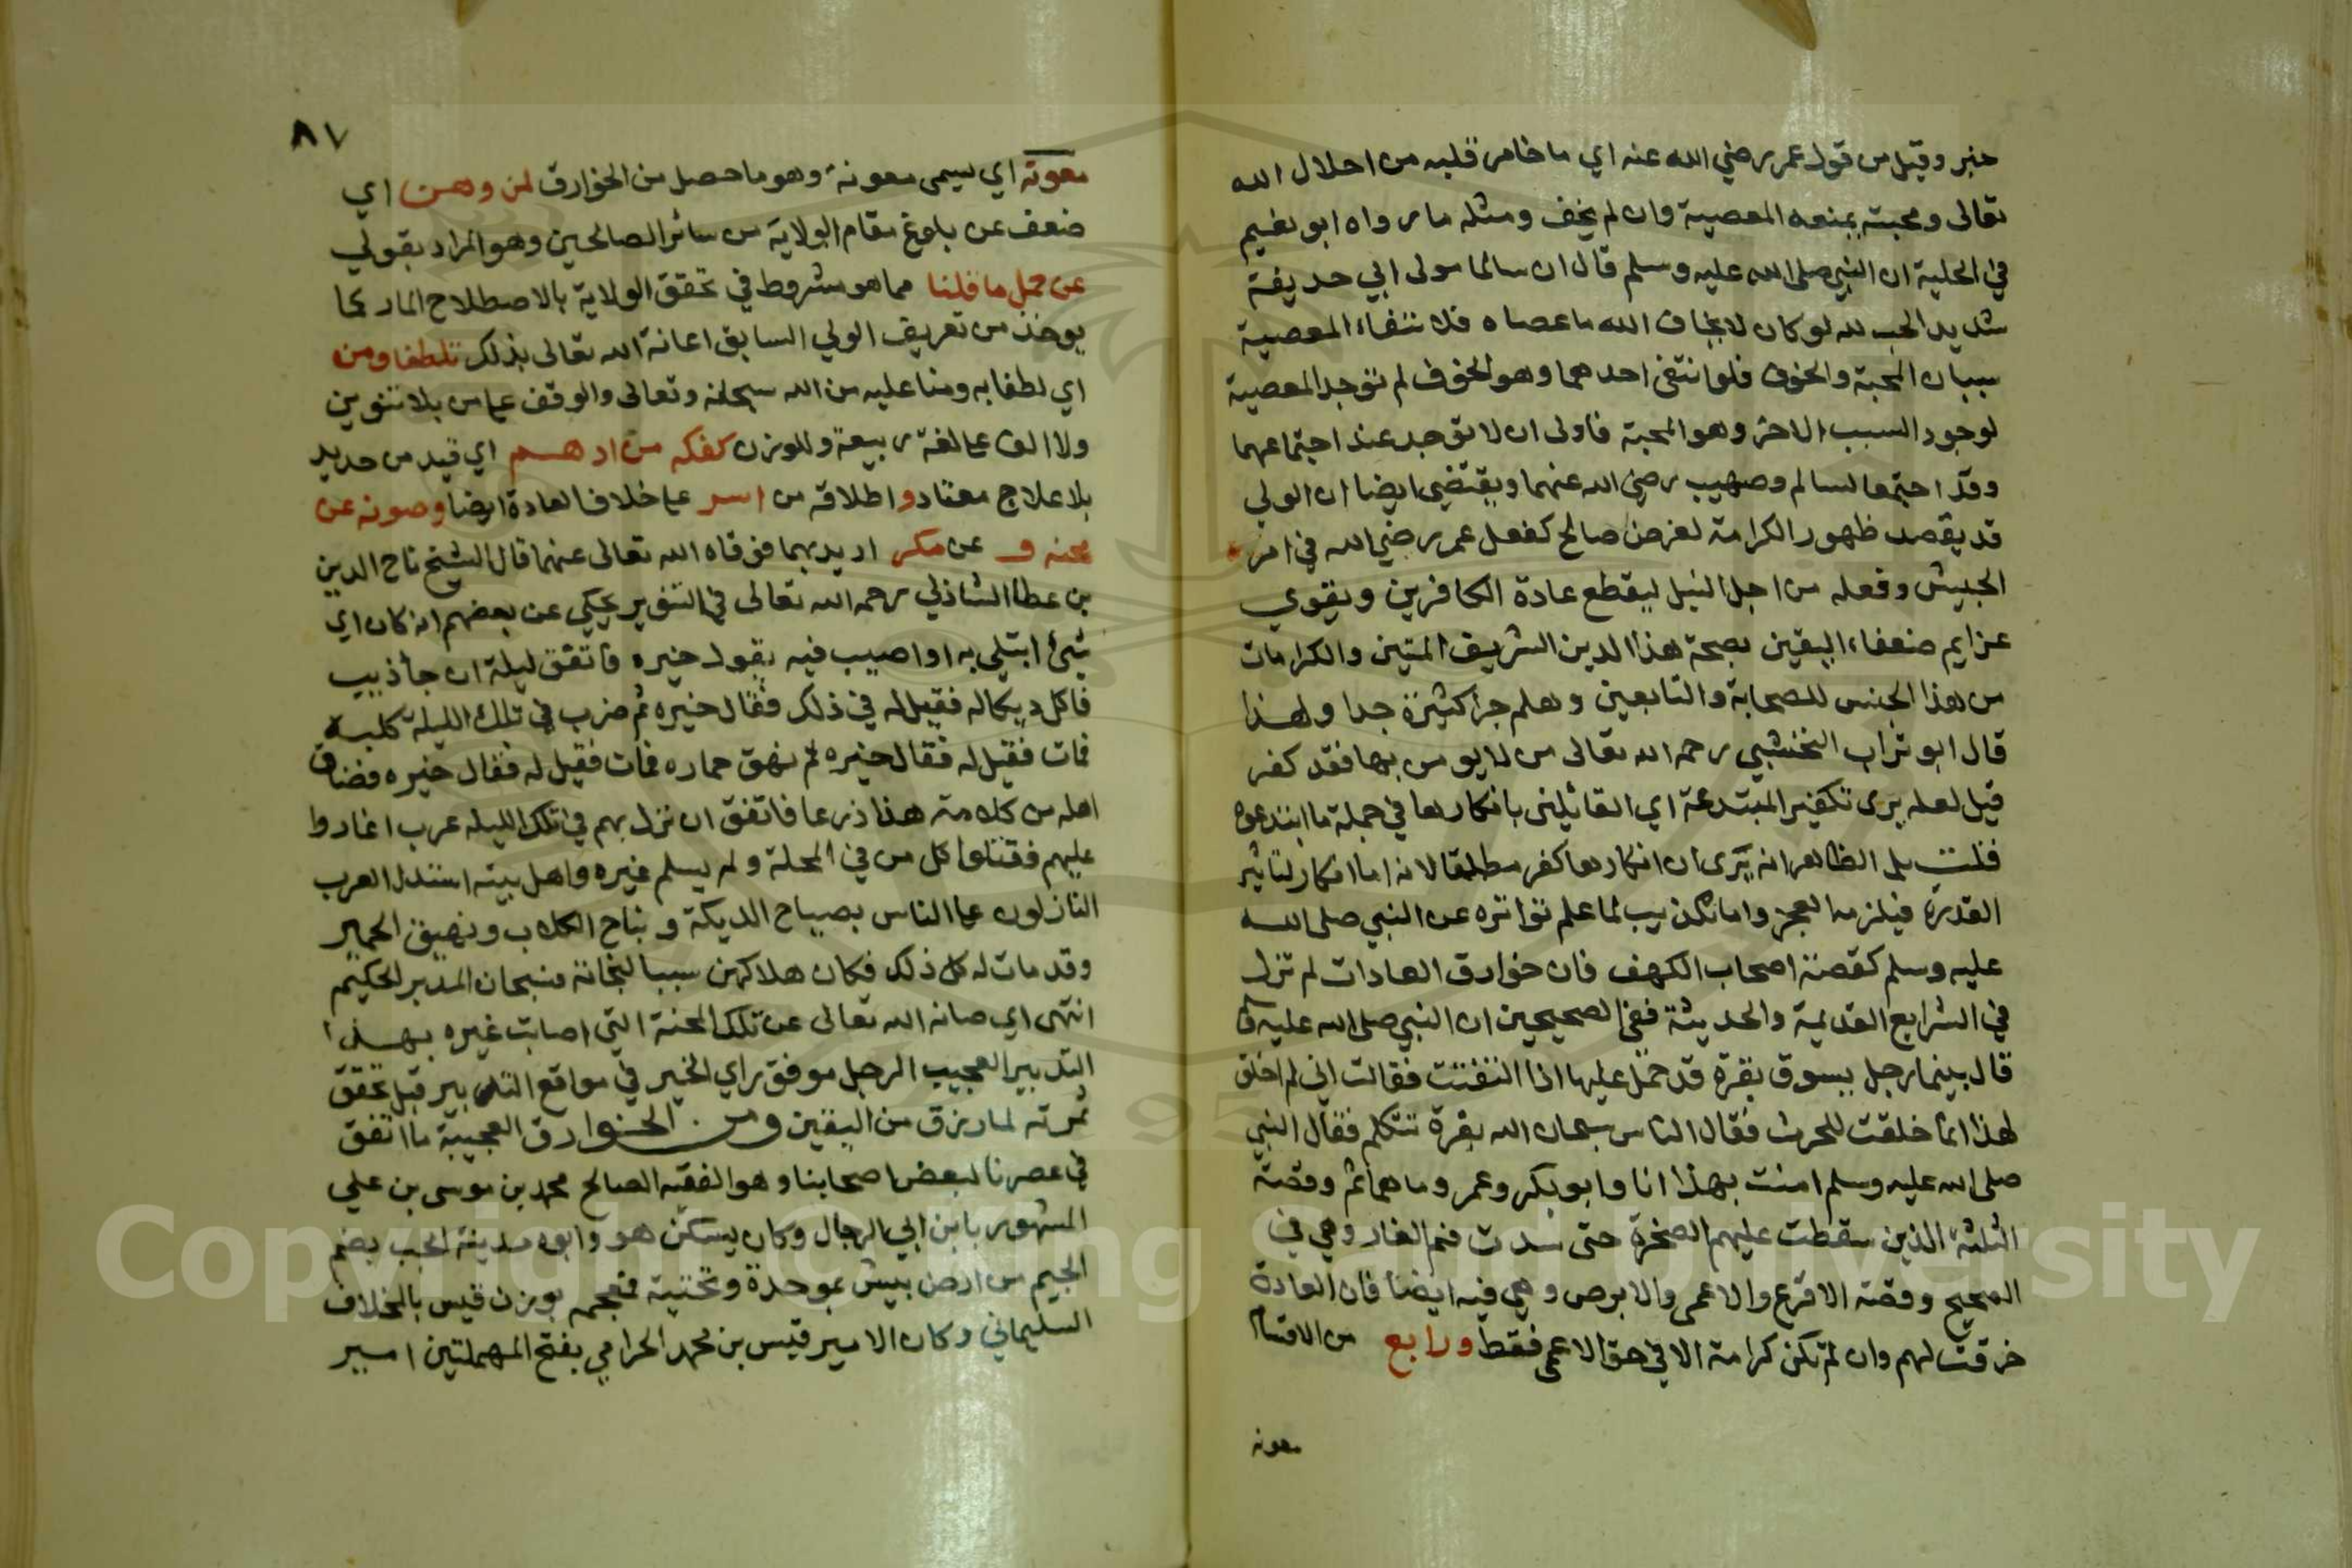 خبر وقيل من قول عمر رضي الله عنه اي ما خامر قلبه من اجلال الله
تعالى ومحبته يمنعه المعصية وان لم يخف ومثله ما رواه ابو نعيم
في الحلية ان النبي صلى الله عليه وسلم قال ان سالما مولى ابي حذيفة
شديد الحب لله لو كان لا يخاف الله ما عصاه فلانتفاء المعصية
سببان المحبة والخوف فلو انتفى احدهما وهو الخوف لم توجد المعصية
لوجود السبب الاخر وهو المحبة فاولى ان لا توجد عند اجتماعهما
وقد اجتمعا لسالم وصهيب رضي الله عنهما ويقتضي ايضا ان الولي
قد يقصد ظهور الكرامة لغرض صالح كفعل عمر رضي الله في امر
الجيش وفعله من اجل النيل ليقطع عادة الكافرين ويقوي
عزايم ضعفاء اليقين بصحة هذا الدين الشريف المتين والكرامات
من هذا الجنس للصحابة والتابعين وهلم جرا كثيرة جدا ولهذا
قال ابو تراب النخشبي رحمه الله تعالى من لا يومن بها فقد كفر
قيل لعله يرى تكفير المبتدعة اي القائلين بانكارها في جملة ما ابتدعوه
قلت بل الظاهر انه يرى ان انكارها كفر مطلقا لانه اما انكار لتاثير
القدرة فيلزمه العجز واما تكذيب لما علم تواتره عن النبي صلى الله
عليه وسلم كقصة اصحاب الكهف فان خوارق العادات لم تزل
في الشرايع القديمة والحديثة ففي الصحيحين ان النبي صلى الله عليه
قال بينما رجل يسوق بقرة قد حمل عليها اذا التفتت فقالت اني لم اخلق
لهذا انما خلقت للحرث فقال الناس سبحان الله بقرة تتكلم فقال النبي
صلى الله عليه وسلم امنت بهذا انا وابو بكر وعمر وما هما ثم وقصة
الثلثة الذين سقطت عليهم الصخرة حتى سدت فم الغار وهي في
الصحيح وقصة الاقرع والاعمى والابرص وهي فيه ايضا فان العادة
خرقت لهم وان لم تكن كرامة الا في حق الاعمى فقط ورابع من الاقسام
معونة
٨٧
معونة اي يسمى معونة وهو ما حصل من الخوارق لمن وهن اي
ضعف عن بلوغ مقام الولاية من سائر الصالحين وهو المراد بقولي
عن حمل ما قلنا مما هو مشروط في تحقق الولاية بالاصطلاح المار كما
يوخذ من تعريف الولي السابق اعانة الله تعالى بذلك تلطفا ومن
اي لطفا به ومنا عليه من الله سبحانه وتعالى والوقف على من بلا تنوين
ولا الف على لغة ربيعة وللوزن كفكه من ادهم اي قيد من حديد
بلا علاج معتاد واطلاقه من اسر على خلاف العادة ايضا وصونه عن
محنه و عن مكر اريد بهما فوقاه الله تعالى عنهما قال الشيخ تاج الدين
بن عطا الشاذلي رحمه الله تعالى في التنوير يحكى عن بعضهم انه كان اي
شئ ابتلي به او اصيب فيه يقول خيره فاتفق ليلة ان جا ذيب
فاكل ديكا له فقيل له في ذلك فقال خيره ثم ضرب في تلك الليلة كلبه
فمات فقيل له فقال خيره ثم نهق حماره فمات فقيل له فقال خيره فضاق
اهله من كلامه هذا ذرعا فاتفق ان نزل بهم في تلك الليله عرب اغاروا
عليهم فقتلوا كل من في المحلة ولم يسلم غيره واهل بيته استدل العرب
النازلون على الناس بصياح الديكة ونباح الكلاب ونهيق الحمير
وقد مات له كل ذلك فكان هلاكهن سببا لنجاته فسبحان المدبر الحكيم
انتهى اي صانه الله تعالى عن تلك المحنة التي اصابت غيره بهذا
التدبير العجيب الرجل موفق راي الخير في مواقع التدبير قبل تحقق
ثمرته لما رزق من اليقين ومن الخوارق العجيبة ما اتفق
في عصرنا لبعض اصحابنا وهو الفقيه الصالح محمد بن موسى بن علي
المشهور بابن ابي الرجال وكان يسكن هو وابوه مدينة الجب بضم
الجيم من ارض بيش بموحدة وتحتية فمعجمه بوزن قيس بالمخلاف
السليماني وكان الامير قيس بن محمد الحرامي بفتح المهملتين امير
Copyright © King Saud University